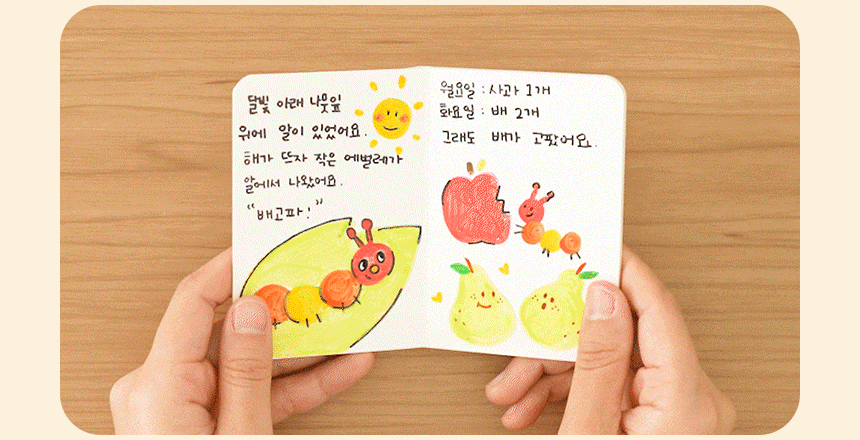 달빛 아래 나뭇잎
위에 알이 있었어요.
해가 뜨자 작은 애벌레가
알에서 나왔어요.
"배고파!"
월요일 : 사과 1개
화요일 : 배 2개
그래도 배가 고팠어요.